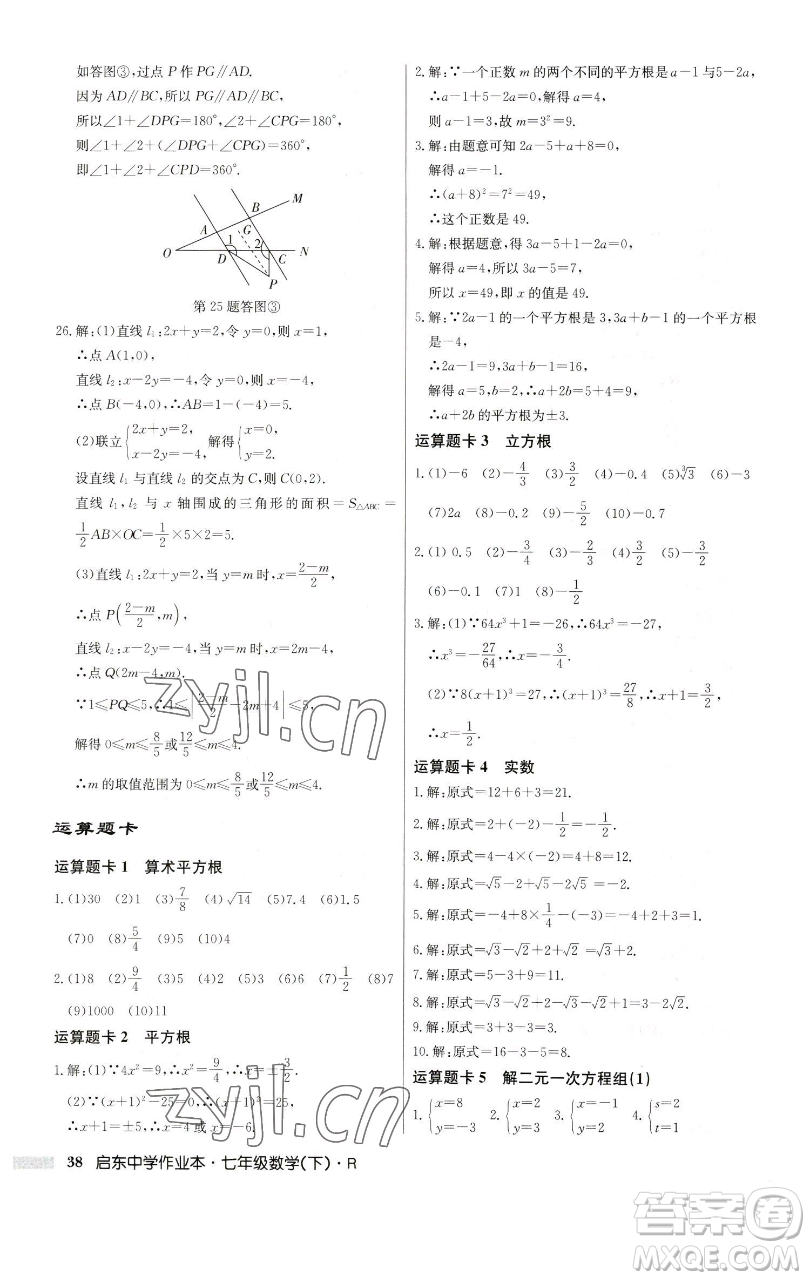 如答图③,过点 P 作 PG∥AD.
因为 AD∥BC,所以 PG∥AD∥BC.
所以∠1+∠DPG=180°,∠2+∠CPG=180°.
所以∠1+∠2+(∠DPG+∠CPG)=360°,
即∠1+∠2+∠CPD=360°.
M
B
A
G
1
2
O
D
C
N
P
第 25 题答图③
26. 解:(1)直线 l₁:2x+y=2,令 y=0,则 x=1,
∴点 A(1,0),
直线 l₂:x-2y=-4,令 y=0,则 x=-4,
∴点 B(-4,0),∴AB=1-(-4)=5.
(2)联立{2x+y=2, x-2y=-4, 解得{x=0, y=2.
设直线 l₁ 与直线 l₂ 的交点为 C,则 C(0,2).
直线 l₁,l₂ 与 x 轴围成的三角形的面积=S△ABC=
1/2 AB×OC=1/2×5×2=5.
(3)直线 l₁:2x+y=2,当 y=m 时,x=(2-m)/2,
∴点 P((2-m)/2,m),
直线 l₂:x-2y=-4,当 y=m 时,
∴点 Q(2m-4,m).
∵1≤PQ≤5,∴1≤|(2-m)/2-2m+4|≤5,
解得 0≤m≤8/5或12/5≤m≤4.
∴m 的取值范围为 0≤m≤8/5或12/5≤m≤4.
运算题卡
运算题卡 1 算术平方根
1. (1)30 (2)1 (3)7/8 (4)√14 (5)7.4 (6)1.5
(7)0 (8)5/4 (9)5 (10)4
2. (1)8 (2)9/4 (3)2 (4)3 (5)1 (6)7 (7)1/2 (8)7
(9)1000 (10)11
运算题卡 2 平方根
1. 解:(1)∵4x²=9,∴x²=9/4,∴x=±3/2.
(2)∵(x+1)²-25=0,∴(x+1)²=25,
∴x+1=±5,∴x=4 或 x=-6.
2. 解:∵一个正数 m 的两个不同的平方根是 a-1 与5-2a,
∴a-1+5-2a=0,解得 a=4,
则 a-1=3,故 m=3²=9.
3. 解:由题意可知 2a-5+a+8=0,
解得 a=-1.
∴(a+8)²=7²=49,
∴这个正数是 49.
4. 解:根据题意,得 3a-5+1-2a=0,
解得 a=4,所以 3a-5=7,
所以 x=49,即 x 的值是 49.
5. 解:∵2a-1 的一个平方根是 3,3a+b-1 的一个平方根
是-4,
∴2a-1=9,3a+b-1=16,
解得 a=5,b=2,∴a+2b=5+4=9,
∴a+2b 的平方根为±3.
运算题卡 3 立方根
1. (1)-6 (2)-4/3 (3)3/2 (4)-0.4 (5)∛3 (6)-3
(7)2a (8)-0.2 (9)-5/2 (10)-0.7
2. (1)0.5 (2)-3/4 (3)-2/3 (4)3/2 (5)-3/2
(6)-0.1 (7)1 (8)-1/2
3. 解:(1)∵64x³+1=-26,∴64x³=-27,
∴x³=-27/64,∴x=-3/4.
(2)∵8(x+1)³=27,∴(x+1)³=27/8,∴x+1=3/2,
∴x=1/2.
运算题卡 4 实数
1. 解:原式=12+6+3=21.
2. 解:原式=2+(-2)-1/2=-1/2.
3. 解:原式=4-4×(-2)=4+8=12.
4. 解:原式=√5-2-√5+1=-1.
5. 解:原式=-4+8×1/4-(-3)=-4+2+3=1.
6. 解:原式=√3-√2+√2=√3.
7. 解:原式=5-6-3=-4.
8. 解:原式=√3-2-√3=-2.
9. 解:原式=3+3-3=3.
10. 解:原式=16-3-5=8.
运算题卡 5 解二元一次方程组(1)
1. {x=8 y=-3 2. {x=2 y=3 3. {x=-1 y=-2 4. {s=2 t=1
38 启东中学作业本·七年级数学(下)·R
zyjl.cn
zyjl.cn
答案圈
MXQE.COM